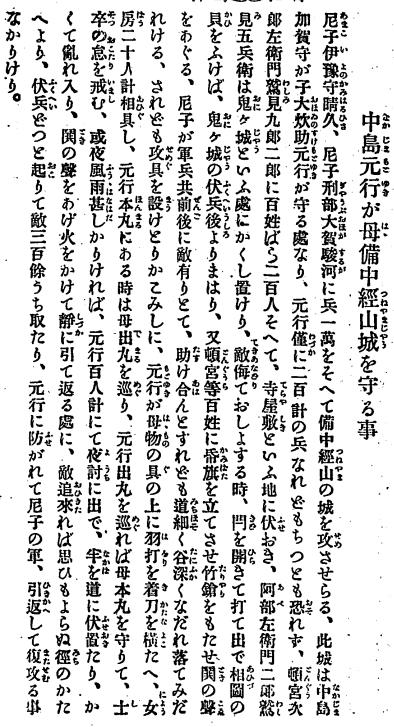 中島元行が母備中經山城を守る事
尼子伊豫守晴久、尼子刑部大賀駿河に兵一萬をそへて備中經山の城を攻させらる、此城は中島
加賀守が子大炊助元行が守る處なり、元行僅に二百計の兵なれどもちつとも恐れず、頓宮次
郎左衞門鷲見九郎二郎に百姓ばら二百人そへて、寺屋敷といふ地に伏おき、阿部左衞門二郎鷲
見五兵衞は鬼ヶ城といふ處にかくし置けり、敵侮ておしよする時、門を開きて打て出で相圖の
貝をふけば、鬼ヶ城の伏兵後よりまはり、又頓宮等百姓に昏旗を立てさせ竹鎗をもたせ関の聲
をあぐる、尼子が軍兵共前後に敵有りとて、助け合んとすれども道細く谷深くなだれ落てみだ
れける、されども攻具を設けとりかこみしに、元行が母物の具の上に羽打を着刀を橫たへ、女
房二十人計相具し、元行本丸にある時は母出丸を巡り、元行出丸を巡れば母本丸を守りて、士
卒の怠を戒む、或夜風雨甚しかりければ、元行百人計にて夜討に出で、半を道に伏置たり、か
くて亂れ入り、関の聲をあげ火をかけて靜に引て返る處に、敵追來れば思ひもよらぬ徑のかた
へより、伏兵どつと起りて敵三百餘うち取たり、元行に防がれて尼子の軍、引返して復攻る事
なかりけり。